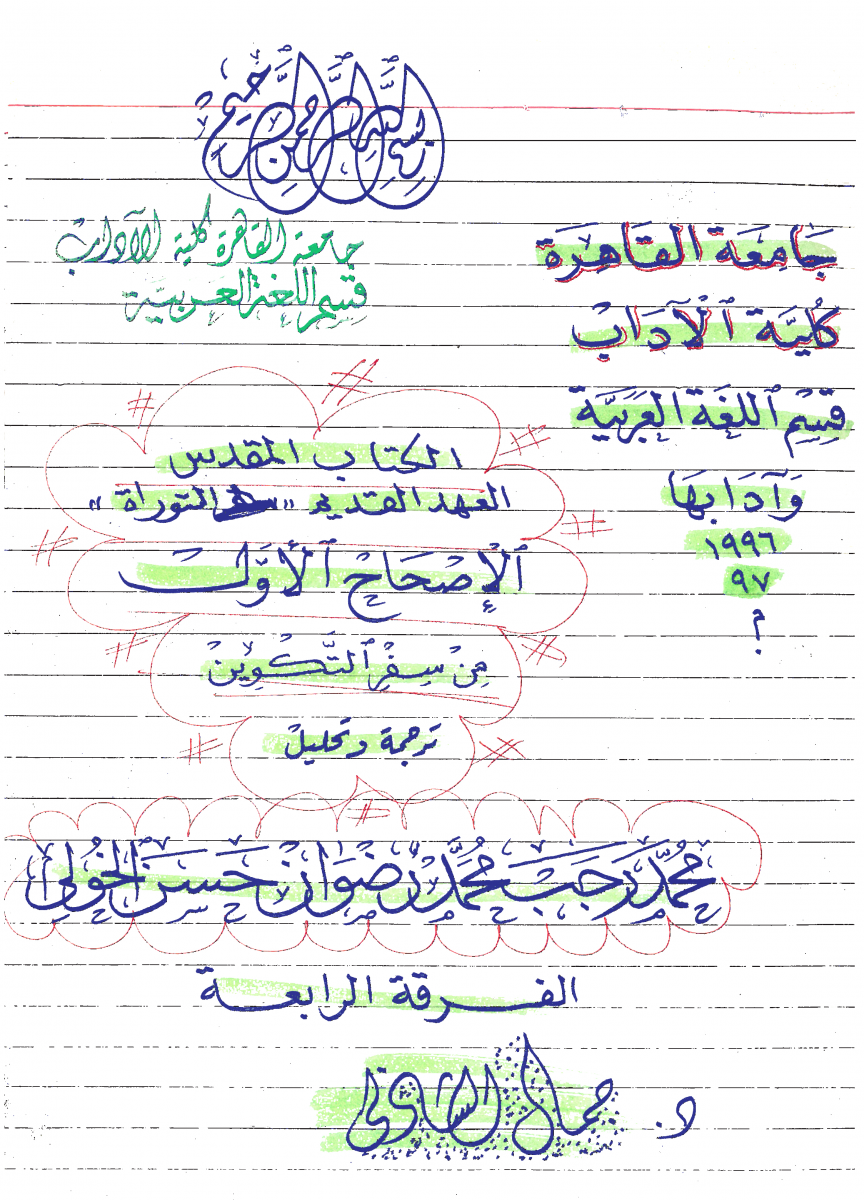 بسم الله الرحمن الرحيم
جَامِعَة القَاهِرَة
كُليَّة ٱلْآدَابْ
قِسِم ٱللغَة العَرَبيَّة
وَآدَابهَا
١٩٩٦
٩٧
؟
جامعة القاهرة كلية الآداب
قسم اللغة العربية
الكتاب المقدس
العهد القديم "التوراة"
ٱلْإِصْحَاحْ ٱلْأَوَّلْ
مِنْ سِفْرِ ٱلتَّكْوِينْ
ترجمة وتحليل
مُحَمَّد رَجَبْ مُحَمَّد رِضْوَانْ حَسَنْ الخُولِي
الفرقة الرابعة
د. جمال